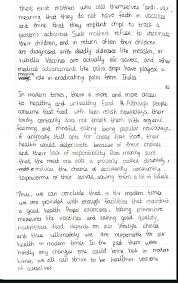 there exist mothers who call themselves "anti vax"
meaning that they do not have faith in vaccines
and think that they implant chips to track a
persons activities. Such mothers refuse to vaccinate
their children, and in return when their children
are diagnosed with deadly diseases like measles, or
rubella. Vaccines are actually life savers, and other
medical advancements like polio drops have played a
role in eradicating polio from India.
In modern times, there is more and more access
to healthy and unhealthy food. Although people
consume fast food with too much
body certainly does not thank them, with organic
farming and mindful eating being popular nowadays,
if anybody still opts for cheap fast food, their
health would deteriorate because of their choices
and their lack of responsibility. Also making sure
that the meat one eats is properly cooked
reduces the chances of
Thus, we can conclude that in the modern times
we are provided with enough facilities that maintain
a good health from exercises, taking preventive
measures like vaccines and eating good quality,
nutritious food depends on our lifestyle choices
and thus ultimately we are responsible for our
health in modern times. In the past there were
hardly any changes one could bring but in modern
times, we all can strive to be healthier versions
of ourselves.